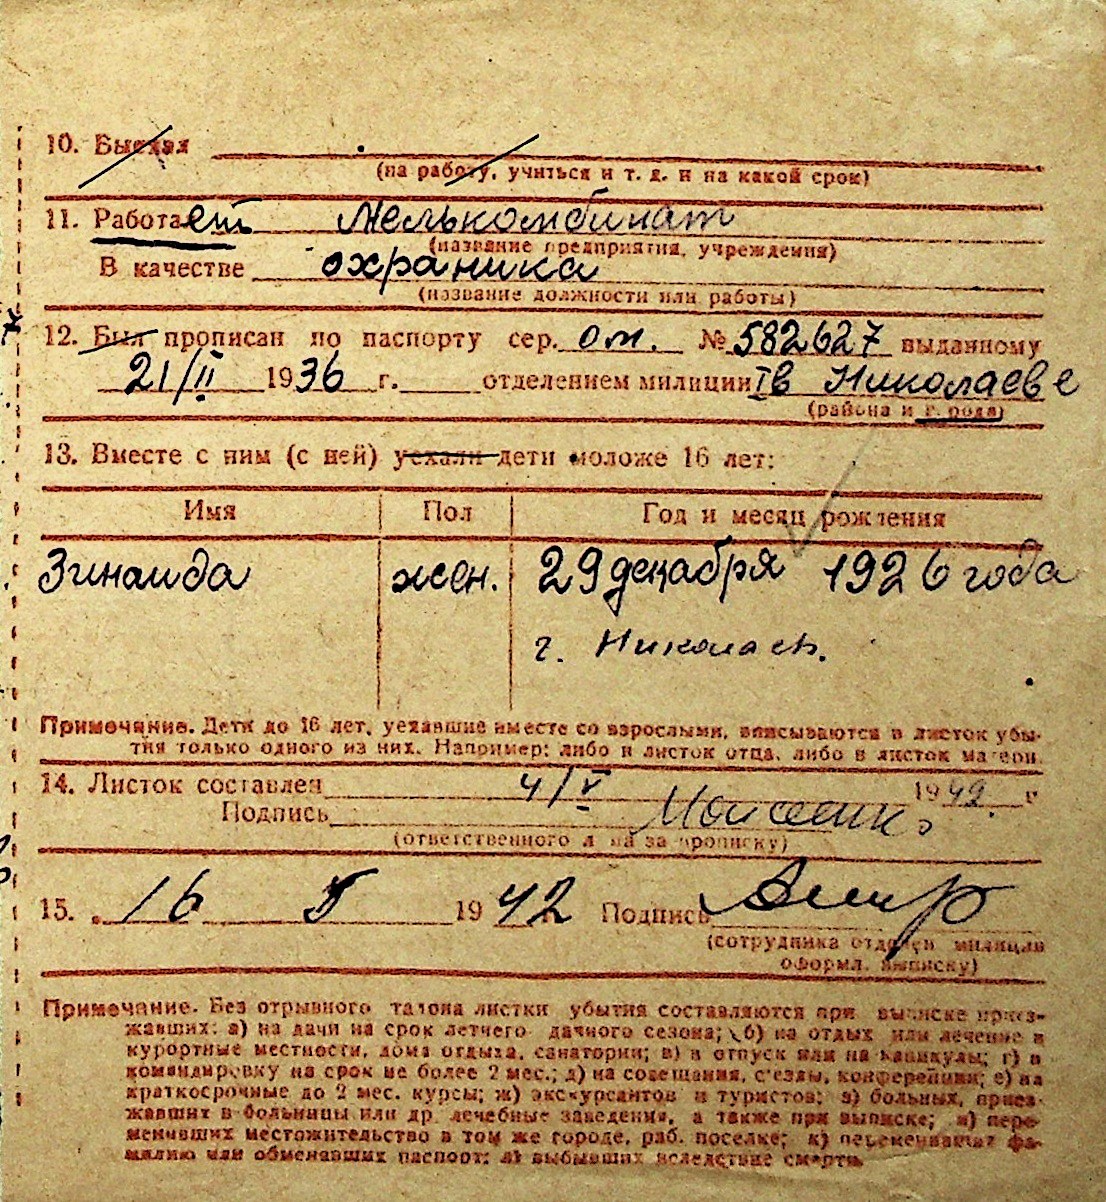 10. Выехал
(на работу, учиться и т. д. и на какой срок)
11. Работает Мелькомбинат
(название предприятия, учреждения)
В качестве охраника
(название должности или работы)
12. Был прописан по паспорту сер. ом. № 582627 выданному
21/II 1936 г. отделением милиции Iв Николаеве
(района и города)
13. Вместе с ним (с ней) уехали дети моложе 16 лет:
Имя Пол Год и месяц рождения
Зинаида жен. 29 декабря 1926 года
г. Николаев.
Примечание. Дети до 16 лет, уехавшие вместе со взрослыми, вписываются в листок убы-
тия только одного из них. Например: либо в листок отца, либо в листок матери.
14. Листок составлен 4/V 1942 г
Подпись
(ответственного лица за прописку)
15. 16 5 1942 Подпись
(сотрудника отделен милиции
оформл. выписку)
Примечание. Без отрывного талона листки убытия составляются при выписке приез-
жавших: а) на дачи на срок летнего дачного сезона; б) на отдых или лечение в
курортные местности, дома отдыха, санатории; в) в отпуск или на каникулы; г) в
командировку на срок не более 2 мес.; д) на совещания, с'езды, конференции; е) на
краткосрочные до 2 мес. курсы; ж) экскурсантов и туристов; з) больных, приез-
жавших в больницы или др. лечебные заведения, а также при выписке; и) пере-
менивших местожительство в том же городе, раб. поселке; к) переменивших фа-
милию или обменавших паспорт; л) выбывших вследствие смерти.